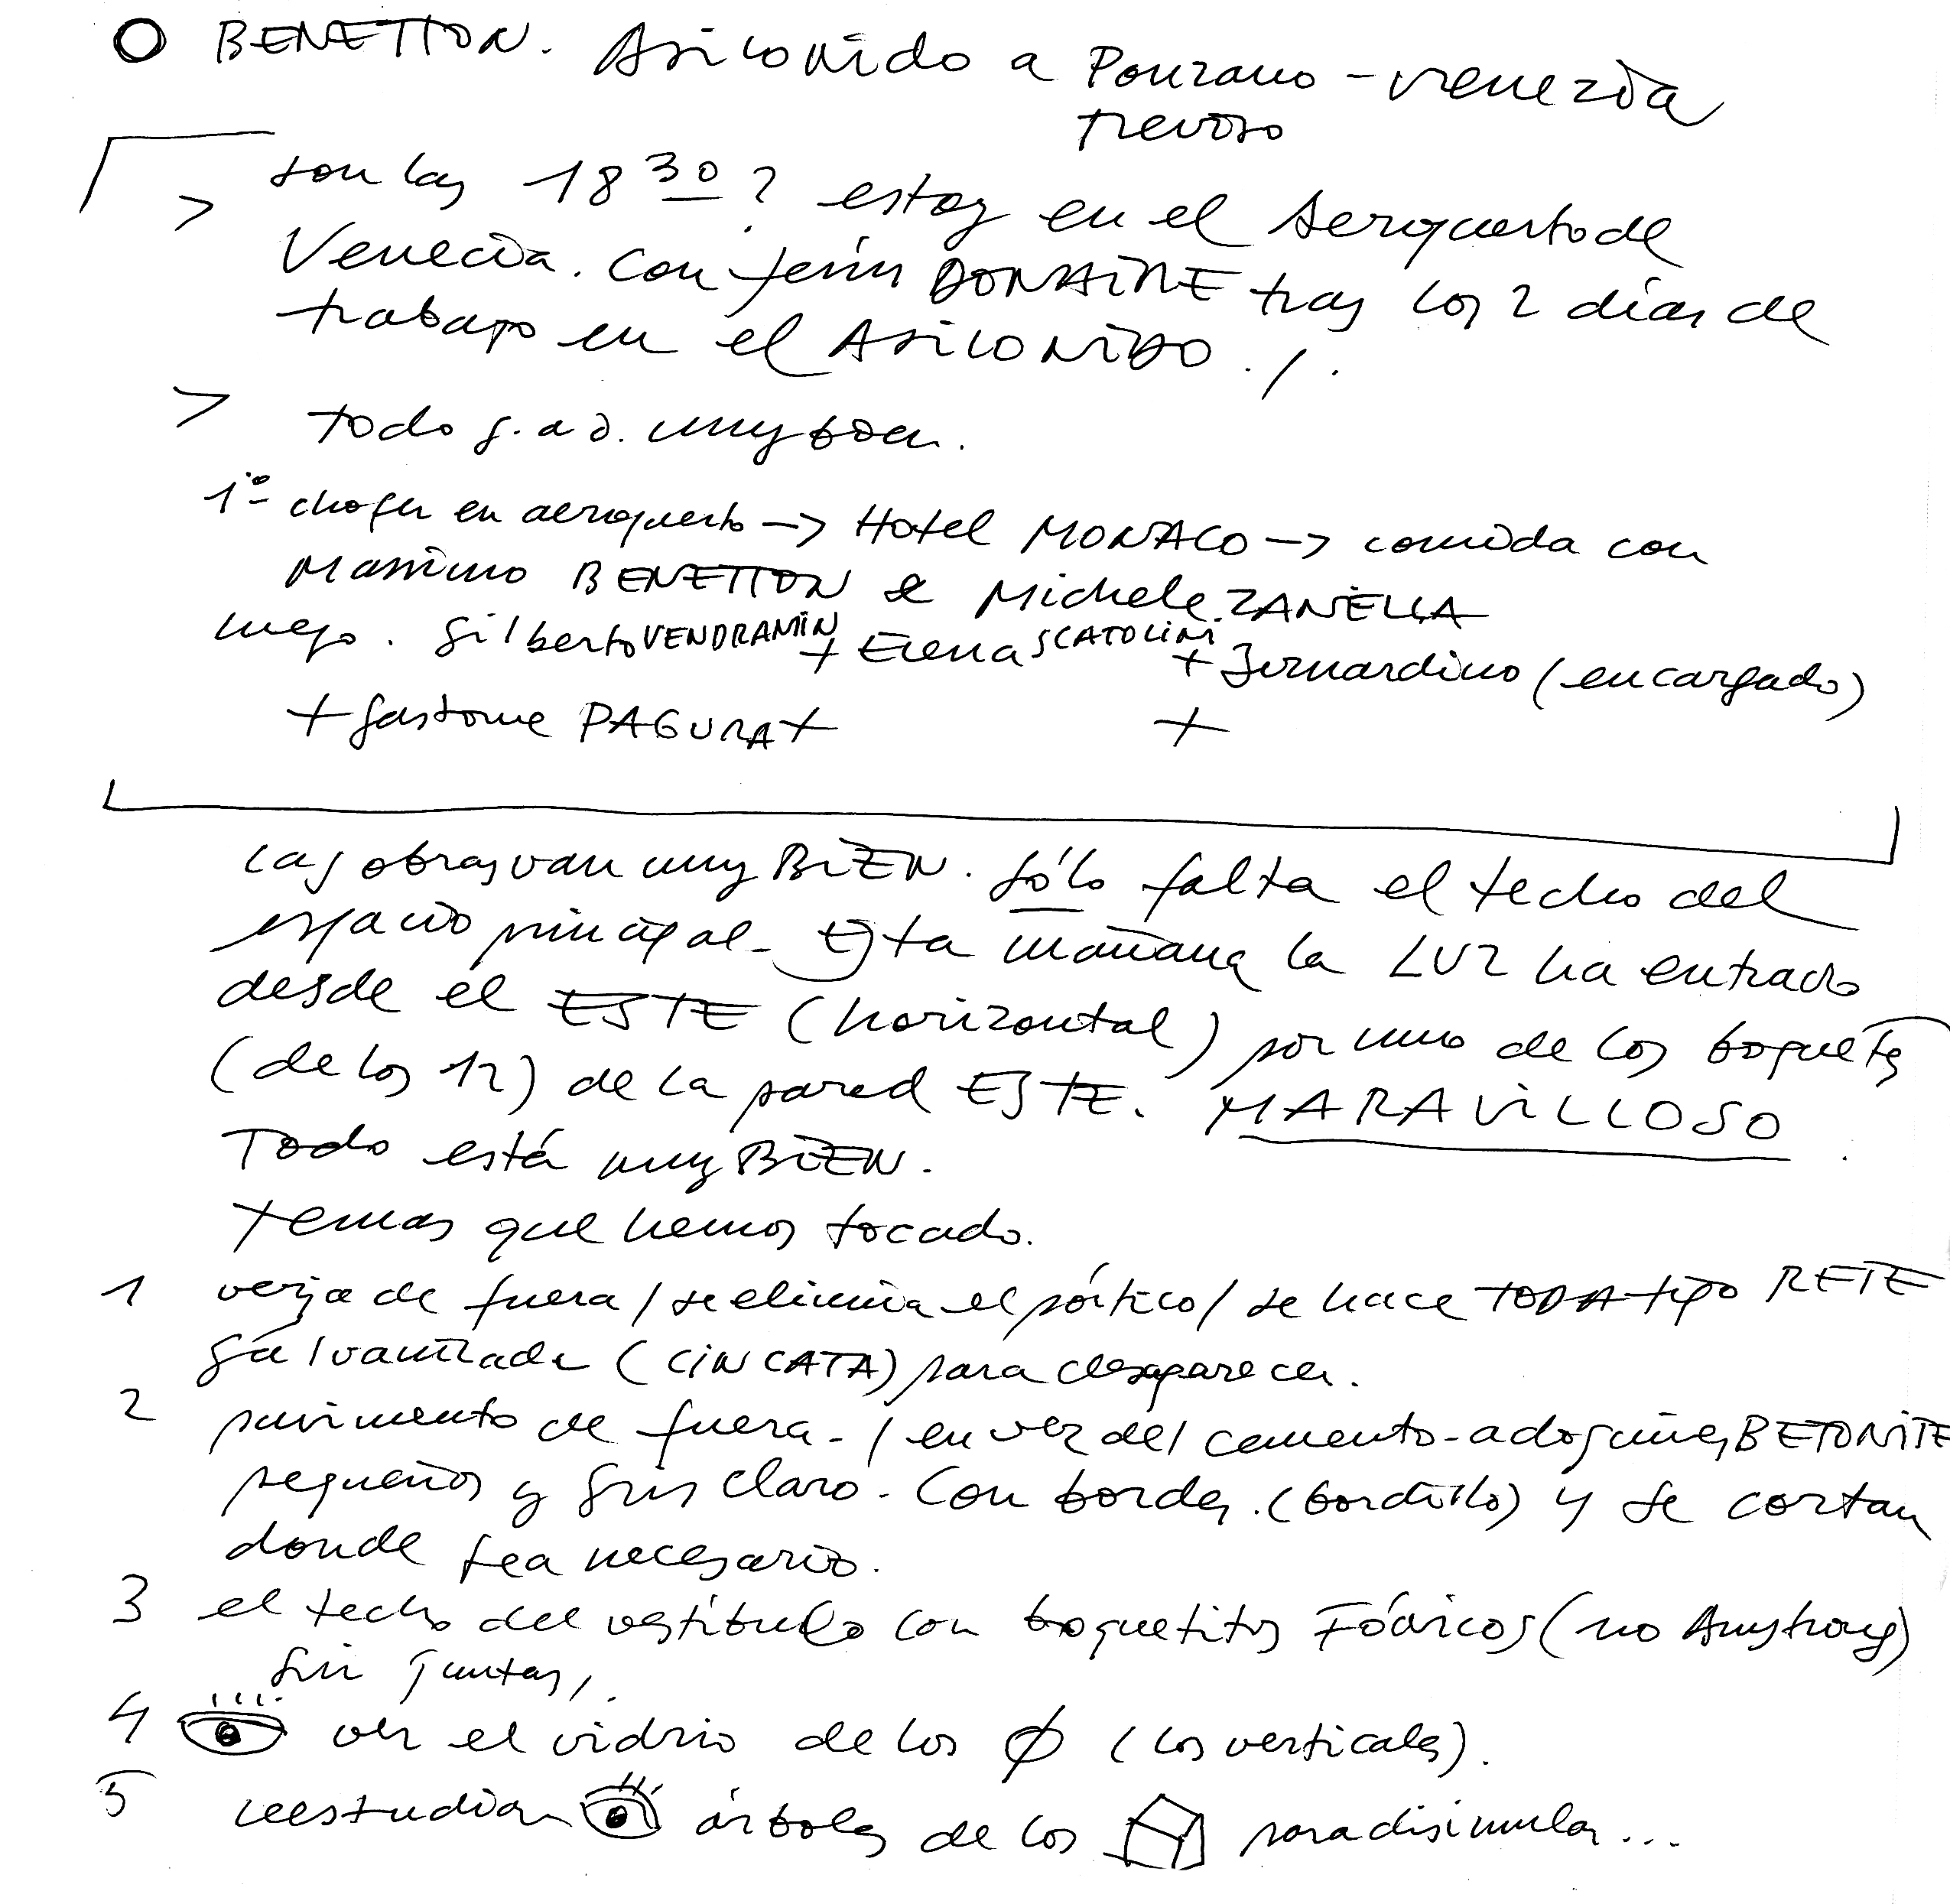 O BENETTON. Asilo Nido a Ponzano - Venezia
Treviso
> son las 18 30? estoy en el Aeropuerto de
Venecia. Con Fermín DONAIRE tras los 2 días de
trabajo en el ASILO NIDO ./.
> todo g. a D. muy bien.
1º- chofer en aeropuerto -> Hotel MONACO -> comida con
Massimo BENETTON & Michele ZANELLA
luego. Gilberto VENDRAMIN + Elena SCATOLINI + Bernardino (encargado)
+ Gastone PAGURA + +
las obras van muy BIEN. Sólo falta el techo del
espacio principal - Esta mañana la LUZ ha entrado
desde el ESTE (horizontal) por uno de los boquetes
(de los 12) de la pared ESTE. MARAVILLOSO
Todo está muy BIEN.
temas que hemos tocado.
1 verja de fuera / se elimina el pórtico / se hace TODA tipo RETE
galvanizada (CINCATA) para desaparecer.
2 pavimento de fuera - / en vez del cemento - adoquines BETONITE
pequeños y gris claro. Con bordes. (bordillo) y se cortan
donde sea necesario.
3 el techo del vestíbulo con boquetitos FÓNICOS (no Amstrong)
sin juntas,.
4 ver el vidrio de los Ø (los verticales).
5 reestudiar árboles de los para disimular...